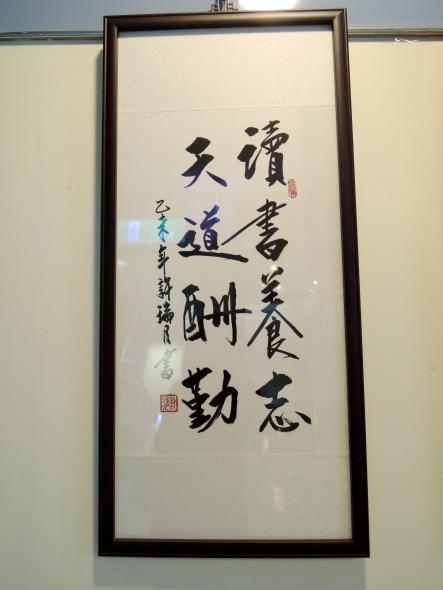 讀書養志
天道酬勤
乙未年許瑞月書